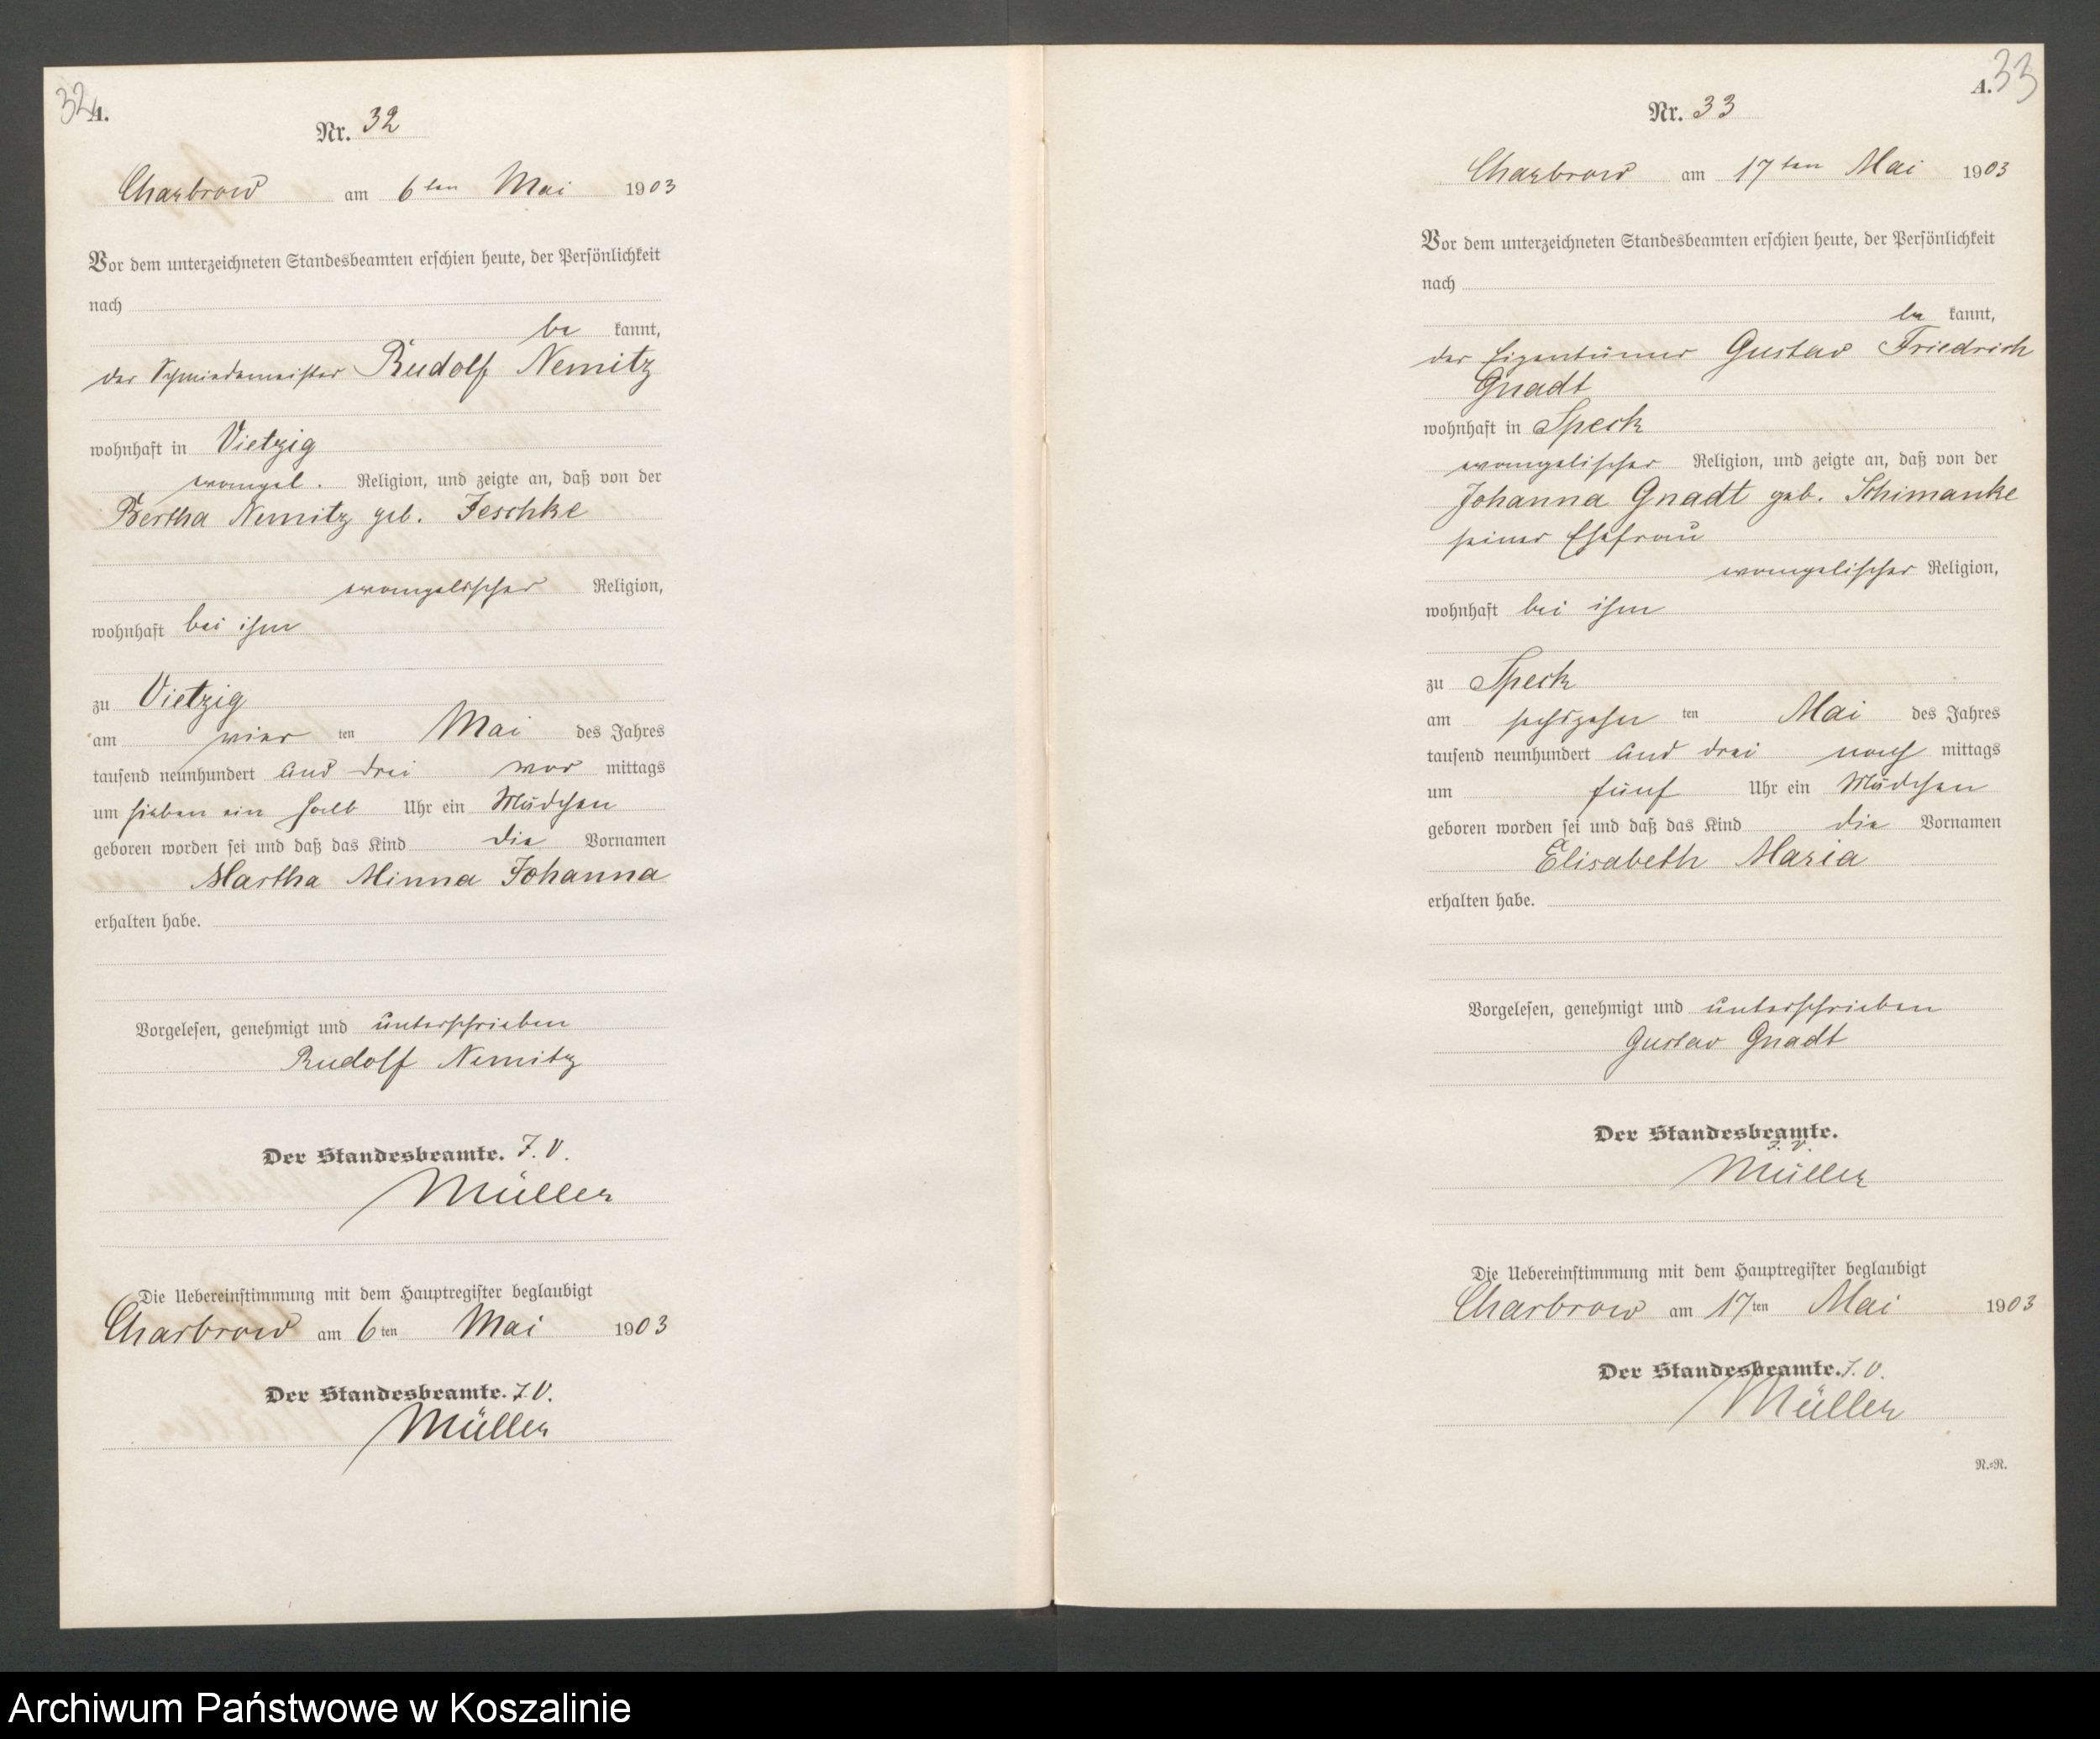 32 A.
Nr. 32
Charbrow am 6 ten Mai 1903
Vor dem unterzeichneten Standesbeamten erschien heute, der Persönlichkeit
nach
be kannt,
der Schmiedemeister Rudolf Nemitz
wohnhaft in Vietzig
evangel. Religion, und zeigte an, daß von der
Bertha Nemitz geb. Jeschke
evangelischer Religion,
wohnhaft bei ihm
zu Vietzig
am vier ten Mai des Jahres
tausend neunhundert und drei vor mittags
um sieben ein halb Uhr ein Mädchen
geboren worden sei und daß das Kind die Vornamen
Martha Minna Johanna
erhalten habe.
Vorgelesen, genehmigt und unterschrieben
Rudolf Nemitz
Der Standesbeamte. I. V.
Müller
Die Uebereinstimmung mit dem Hauptregister beglaubigt
Charbrow am 6 ten Mai 1903
Der Standesbeamte. I. V.
Müller
A. 33
Nr. 33
Charbrow am 17 ten Mai 1903
Vor dem unterzeichneten Standesbeamten erschien heute, der Persönlichkeit
nach
be kannt,
der Eigentümer Gustav Friedrich
Gnadt
wohnhaft in Speck
evangelischer Religion, und zeigte an, daß von der
Johanna Gnadt geb. Schimanke
seiner Ehefrau
evangelischer Religion,
wohnhaft bei ihm
zu Speck
am sechszehn ten Mai des Jahres
tausend neunhundert und drei nach mittags
um fünf Uhr ein Mädchen
geboren worden sei und daß das Kind die Vornamen
Elisabeth Maria
erhalten habe.
Vorgelesen, genehmigt und unterschrieben
Gustav Gnadt
Der Standesbeamte.
I. V.
Müller
Die Uebereinstimmung mit dem Hauptregister beglaubigt
Charbrow am 17 ten Mai 1903
Der Standesbeamte. I. V.
Müller
N.=R.
Archiwum Państwowe w Koszalinie